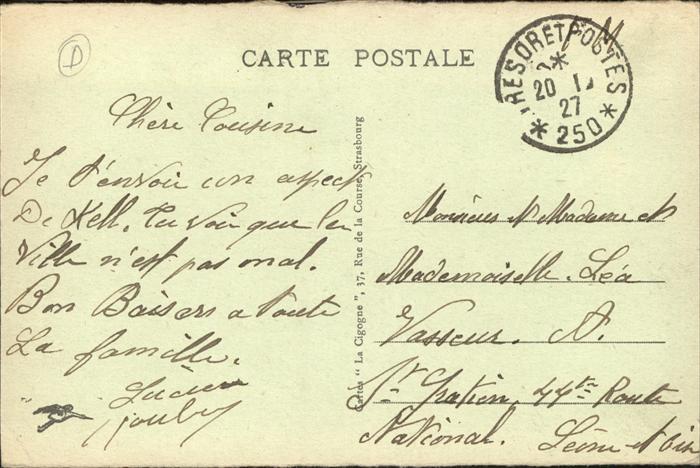 D
CARTE POSTALE
TRESOR ET POSTES
20 1
27
* 250 *
Chère Cousine
Je t'envoie un aspect
De Kell. tu voir que la
Ville n'est pas mal.
Bon Baisers a toute
La famille.
Lucien
Cartes " La Cigogne ", 37, Rue de la Course, Strasbourg
Monsieur et Madame et
Mademoiselle. Léa
Vasseur. A.
St Gratien. 44 Route
National. Seine et Oise